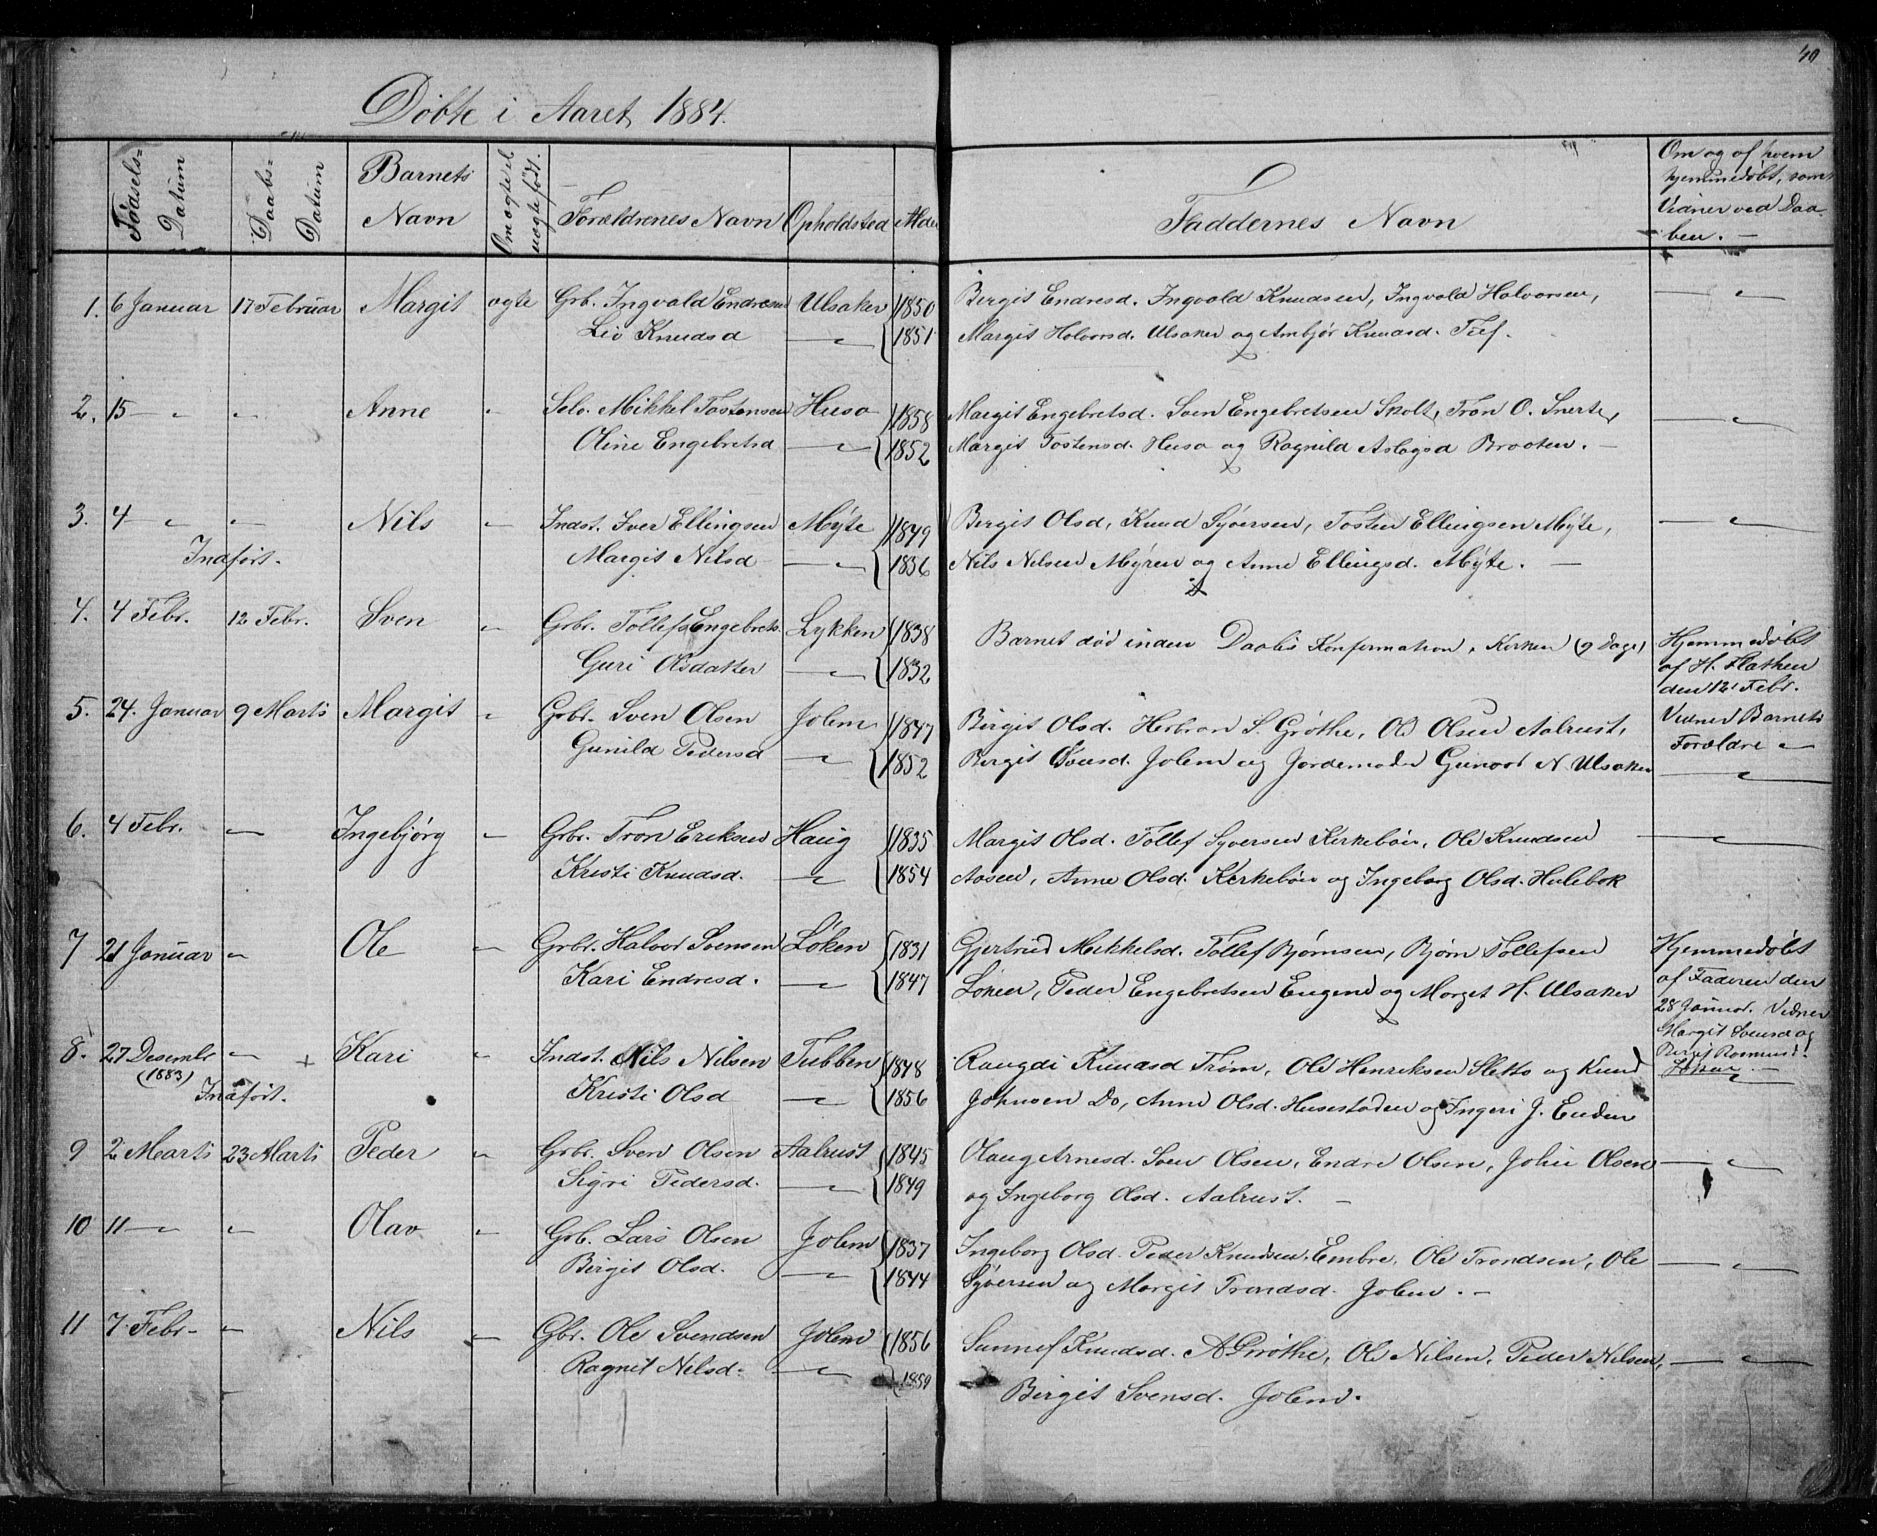 40
Døbte i Aaret 1884.
Fødsels-Datum
Daabs-Datum
Barnets Navn
Om ægte el uægte født.
Forældrenes Navn
Opholdsted
Alder
Faddernes Navn
Om og af hvem hjemmedøbt, samt Vidner ved Daaben. -
1. 6 Januar 17 Februar Margit ægte Grb. Ingvald Endresen Ulsaker 1850 Birgit Endresd. Ingvald Knudsen, Ingvald Halvorsen, — " —
Liv Knudsd — " — 1851 Margit Halvorsd. Ulsaker og Ambjør Knudsd. Tuf.
2. 15 — " — " — Anne " Selv. Mikkel Tostensen Huso 1858 Margit Engebretsd. Sven Engebretsen Skolt, Tron O. Snerte, — " —
Oline Engebretsd — " — 1852 Margit Tostensd. Huso og Ragnild Aslagsd Braaten. —
3. 4 — " — " — Nils " Indst. Iver Ellingsen Mÿte 1849 Birgit Olsd, Knud Syversen, Tosten Ellingsen Mÿte, — " —
Indført. Margit Nilsd — " — 1836 Nils Nilsen Mÿren og Anne Ellingsd. Mÿte. —
4. 4 Febr. 12 Febr. Sven " Grbr. Tollef Engebrets. Lykken 1838 Barnet død inden Daabs Konfirmation, Kirken (9 Dage) Hjemmedøbt
Guri Olsdatter — " — 1832 af H. Flathen
den 12 Febr.
5. 24. Januar 9 Marts Margit " Grbr. Sven Olsen Jolem 1847 Birgit Olsd. Herbran S. Grøthe, Ole Olsen Aalrust, Vidner Barnets
Gunild Pedersd — " — 1852 Birgit Svensd. Jolem og Jordemoder Gunvor N. Ulsaker Forældre "
— " —
6. 4 Febr. — " — Ingebjørg " Grbr. Tron Eriksen Haug 1835 Margit Olsd. Tollef Syversen Kirkebøen, Ole Knudsen — " —
Kristi Knudsd. — " — 1854 Aasen, Anne Olsd. Kirkebøen og Ingeborg Olsd. Hulebak
7 21 Januar " Ole " Grbr. Halvor Svensen Løken 1831 Gjertrud Mikkelsd. Tollef Bjørnsen, Bjørn Tollefsen Hjemmedøbt
Kari Endresd. — " — 1847 Løken, Peder Engebretsen Eugene og Margit H. Ulsaker af Faderen den
28 Januar. Vidner
Margit Svensd og
Birgit Rasmusd.
8. 27 Desembr " + Kari " Indst. Nils Nilsen Tubben 1848 Raugdi Knudsd Trøm, Ole Henriksen Sletto og Knud — " —
(1883) Indført. Kristi Olsd — " — 1856 Johnsen Do, Anne Olsd. Husestaden og Ingeri J. Enden
9 2 Marts 23 Marts Peder " Grbr. Sven Olsen Aalrust 1845 Olaug Arnesd. Sven Olsen, Endre Olsen, John Olsen — " —
Sigri Pedersd. — " — 1849 og Ingeborg Olsd. Aalrust. —
10 11 — " — " Olav " Grb. Lars Olsen Jolem 1837 Ingeborg Olsd. Peder Knudsen, Embre, Ole Trondsen, Ole — " —
Birgit Olsd. — " — 1844 Syversen og Margit Trondsd. Jolem. —
11 7 Febr. — " Nils " Gbr. Ole Svendsen Jolem 1856 Sunnef Knudsd. A Grøthe, Ole Nilsen, Peder Nilsen, — " —
Ragnil Nilsd. — " — 1859 Birgit Svensd. Jolem.